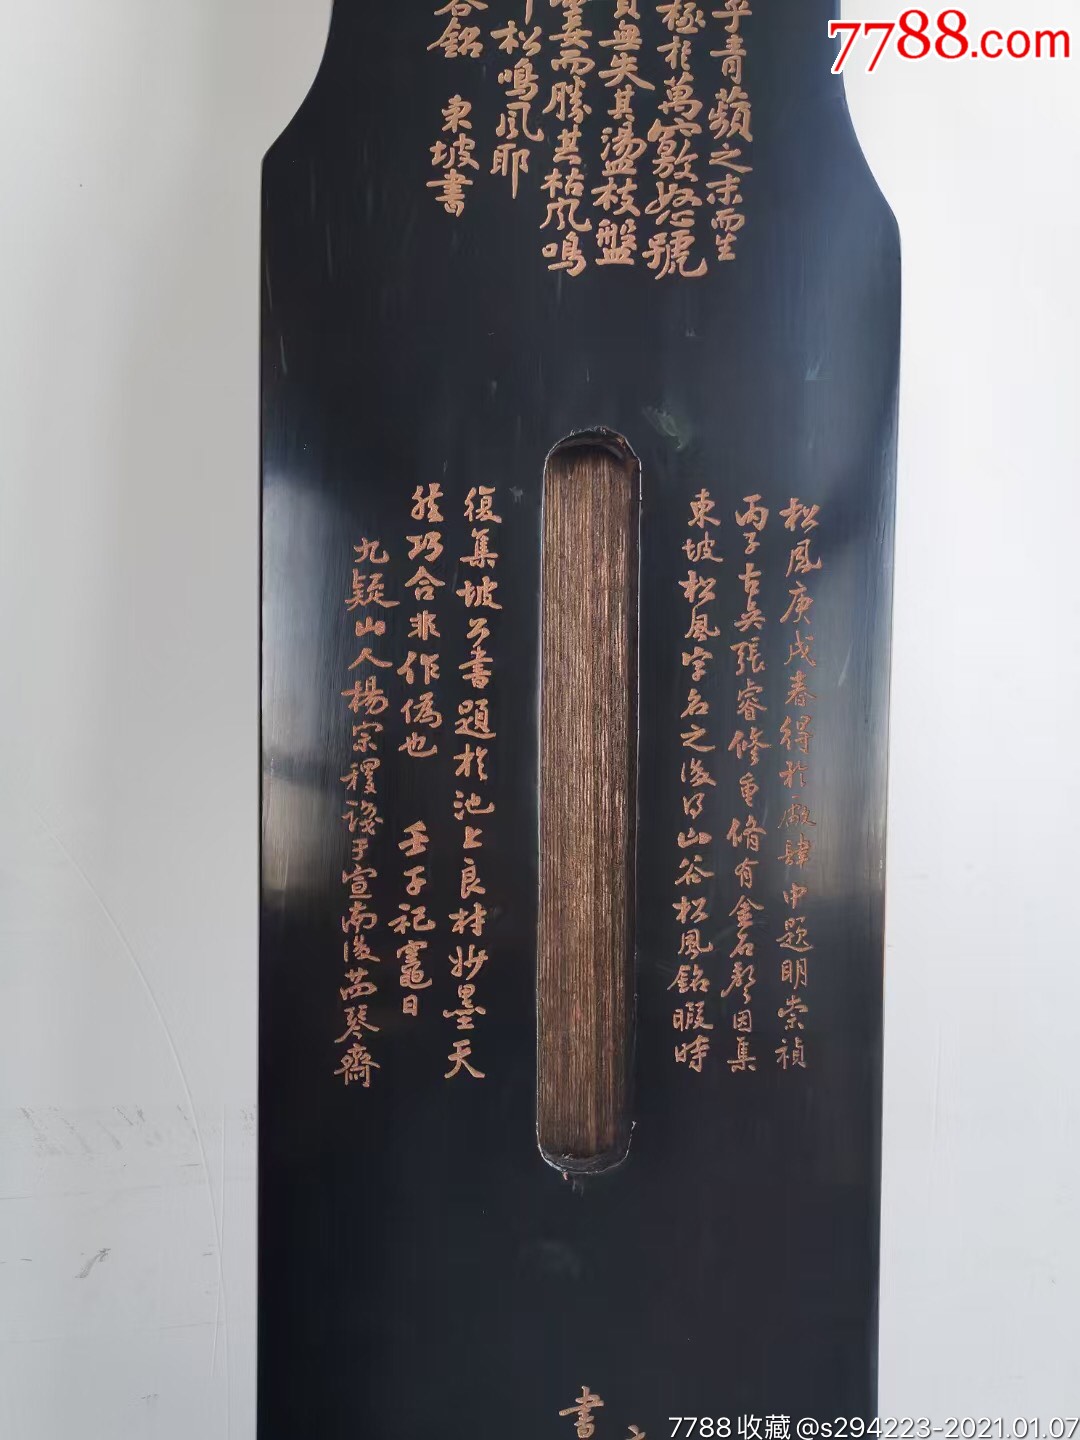 7788.com
乎青蘋之末而生
極於萬竅怒號
無失其湯枝盤
妄而勝其枯風鳴
松鳴風耶
谷銘 東坡書
松風庚戌春得於廠肆中題明崇禎
丙子古吳張睿修重脩有金石聲因集
東坡松風字名之後得山谷松風銘暇時
復集坡公書題於池上良材妙墨天
然巧合非作偽也 壬子祀竈日
九疑山人楊宗稷識于宣南後苗琴齋
書
7788收藏@s294223-2021.01.07